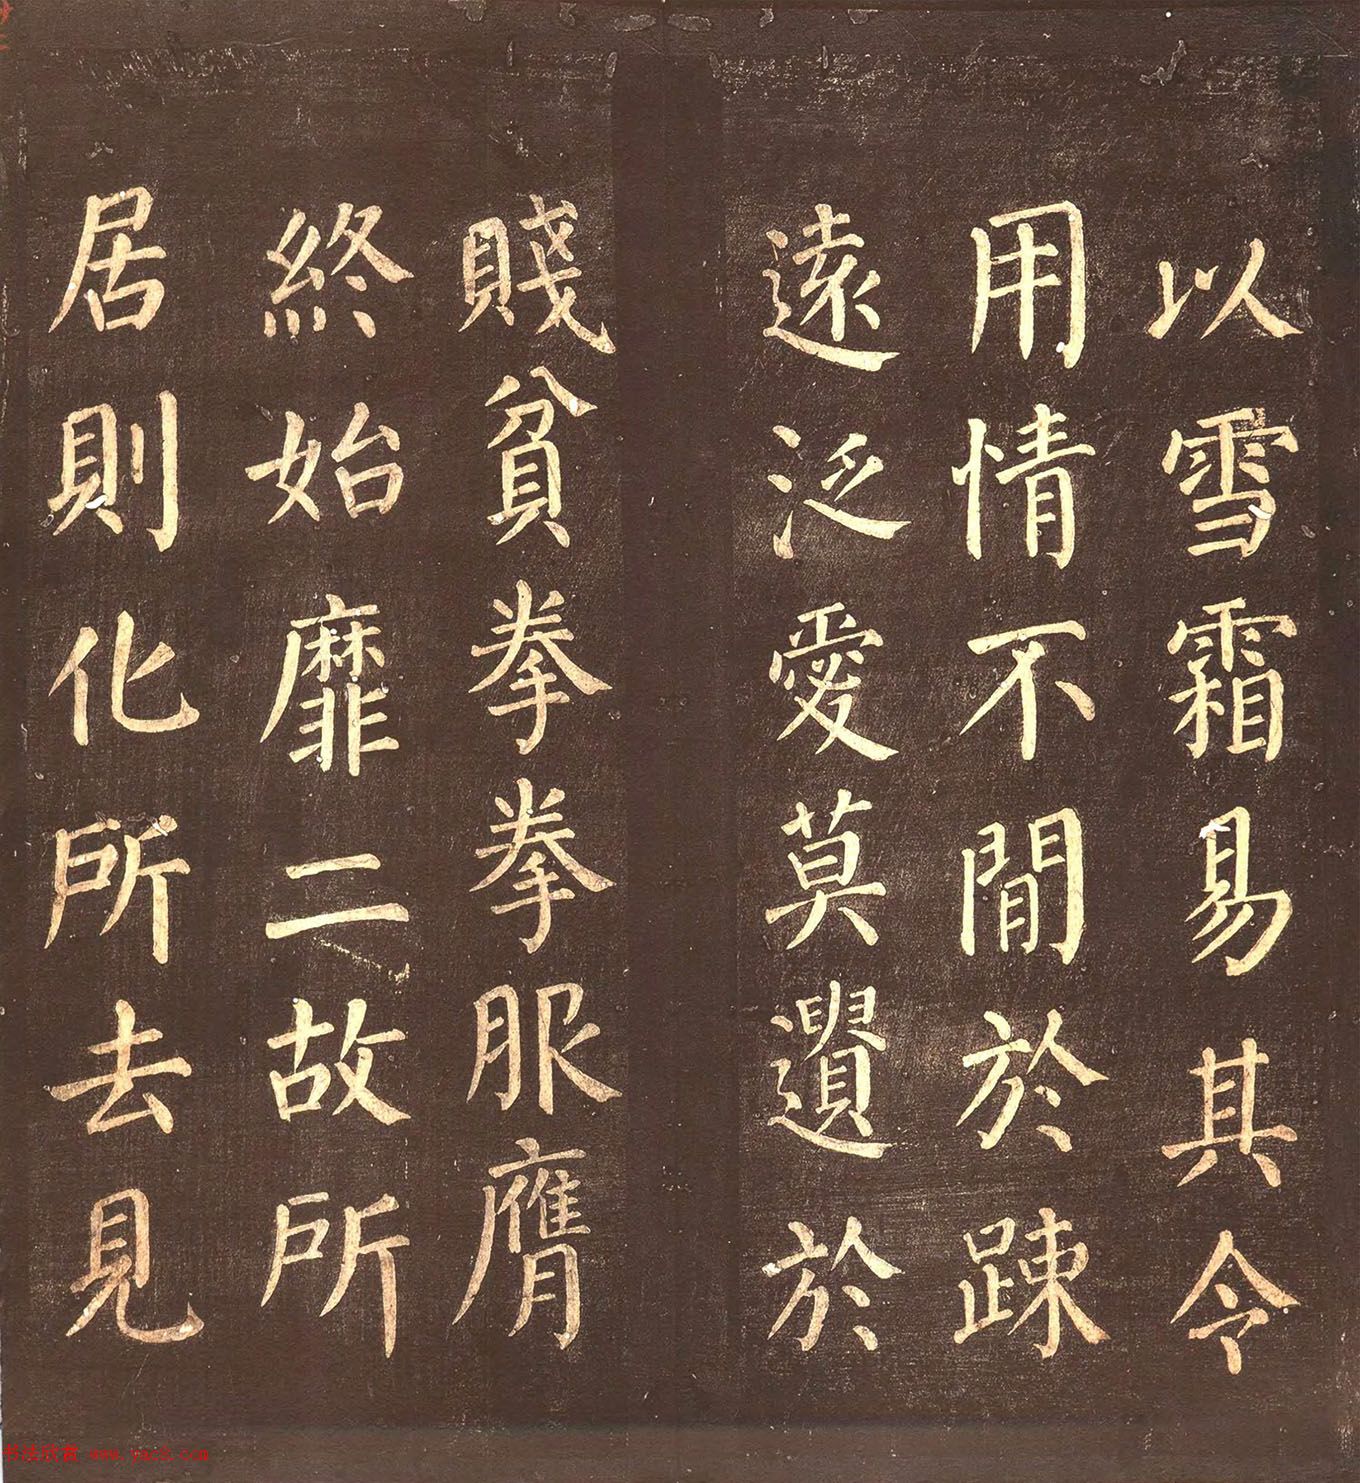 以雪霜易其令
用情不間於踈
遠泛愛莫遺於
賤貧拳拳服膺
終始靡二故所
居則化所去見
书法欣赏 www.yac8.com